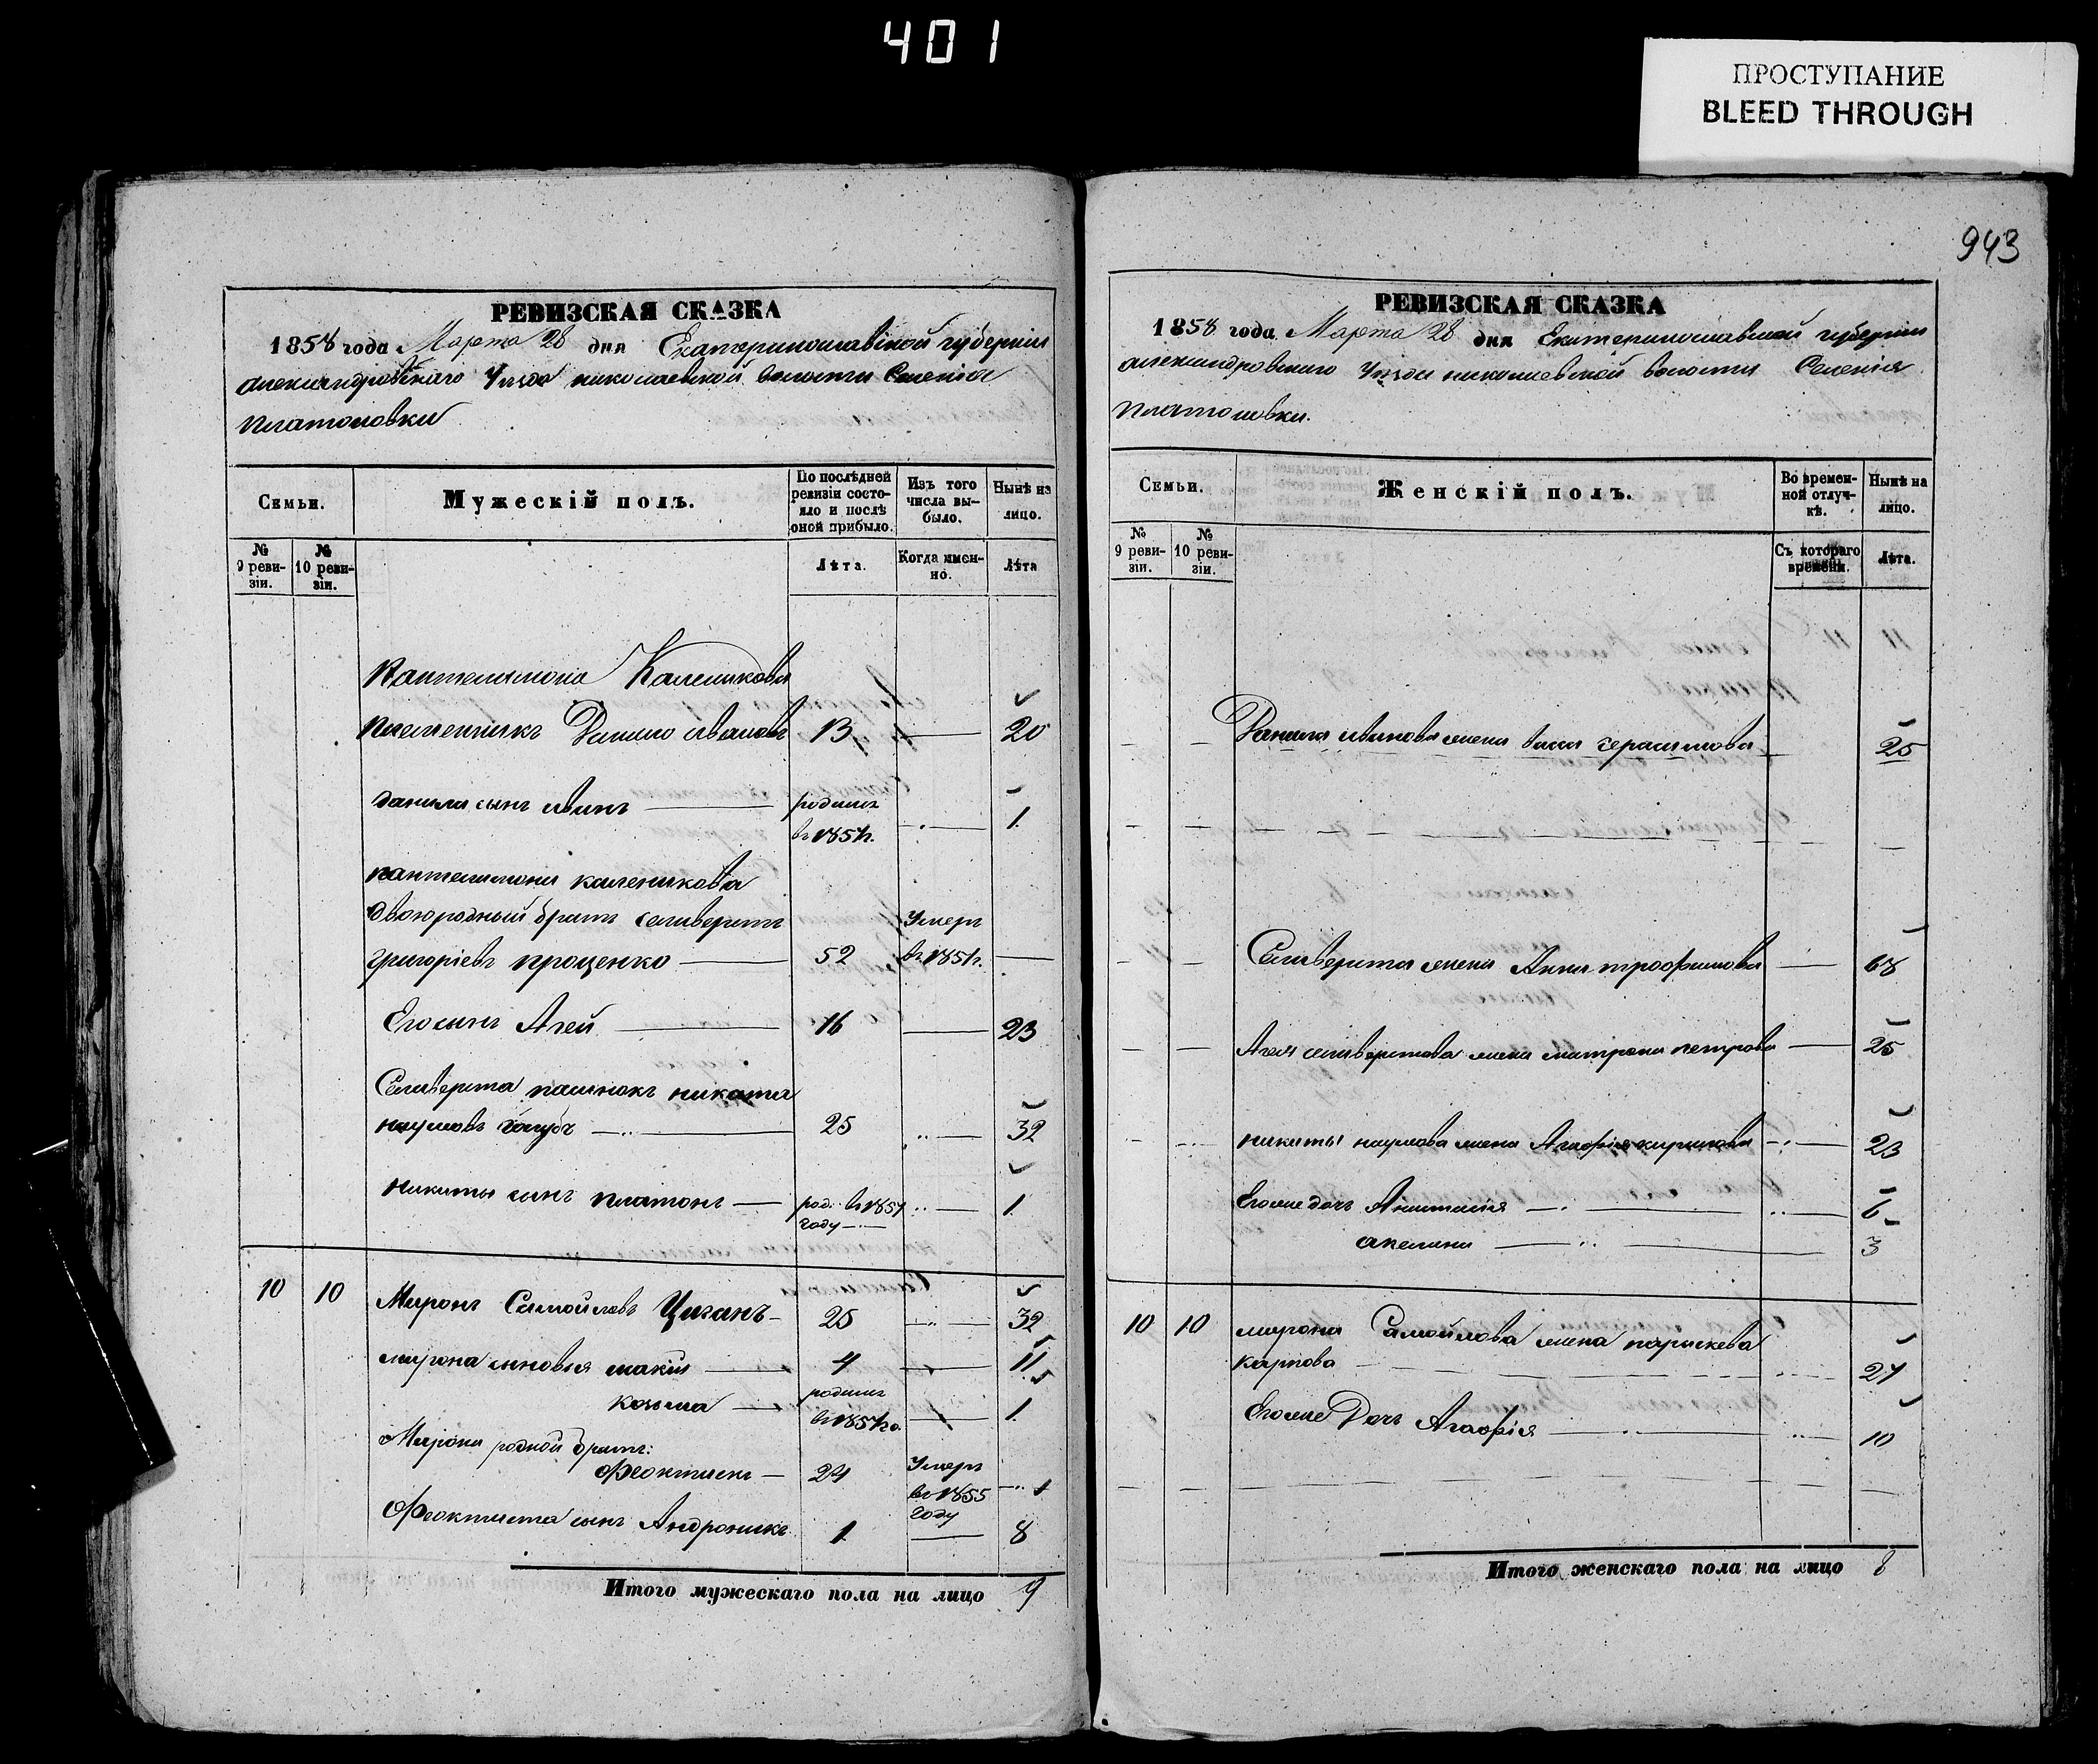 401
ПРОСТУПАНИЕ
BLEED THROUGH
943
РЕВИЗСКАЯ СКАЗКА
1858 года Марта 28 дня Екатеринославской губернии
Александровскаго Уезда николаевской волости Селенія
платоновки
Семьи.
Мужескій полъ.
По послѣдней ревизіи состояло и послѣ оной прибыло.
Изъ того числа выбыло.
Нынѣ на лицо.
№ 9 ревизіи.
№ 10 ревизіи.
Лѣта.
Когда именно.
Лѣта
Пантелимона Каленикова
племенникъ Данило ивановъ 13 20
данила сынъ иванъ родился въ 1857г. 1.
пантелимона каленикова
двоюродный братъ селиверстъ
григоріевъ проценко 52 Умеръ въ 1857г.
Его сынъ Агей 16 23
Селиверста пасынокъ никита
наумовъ голубъ 25 32
Никиты сынъ платонъ род: въ 1857 году 1.
10 10 Миронъ Самойловъ Циганъ 25 32
мирона сыновья макѣй 4 11
козьма родился въ 1857го. 1.
Мирона родной братъ:
Феоктистъ 24 Умеръ въ 1855 году
Феоктиста сынъ Андроникъ 1 8
Итого мужескаго пола на лицо 9
РЕВИЗСКАЯ СКАЗКА
1858 года Марта 28 дня Екатеринославской губерніи
александровскаго Уезда николаевской волости Селенія
платоновки.
Семьи.
Женскій полъ.
Во временной отлучкѣ.
Нынѣ на лицо.
№ 9 ревизіи.
№ 10 ревизіи.
Съ котораго времени.
Лѣта.
Данила иванова жена васса герасимова 25
Селиверста жена Анна трофимова 68
Агея селиверстова жена матрона петрова 25
никиты наумова жена Агафія кирилова 23
Его же дочь Анастасія 6
акелина 3
10 10 мирона Самойлова жена параскева
карпова 27
Его же Дочь Агафія 10
Итого женскаго пола на лицо 8